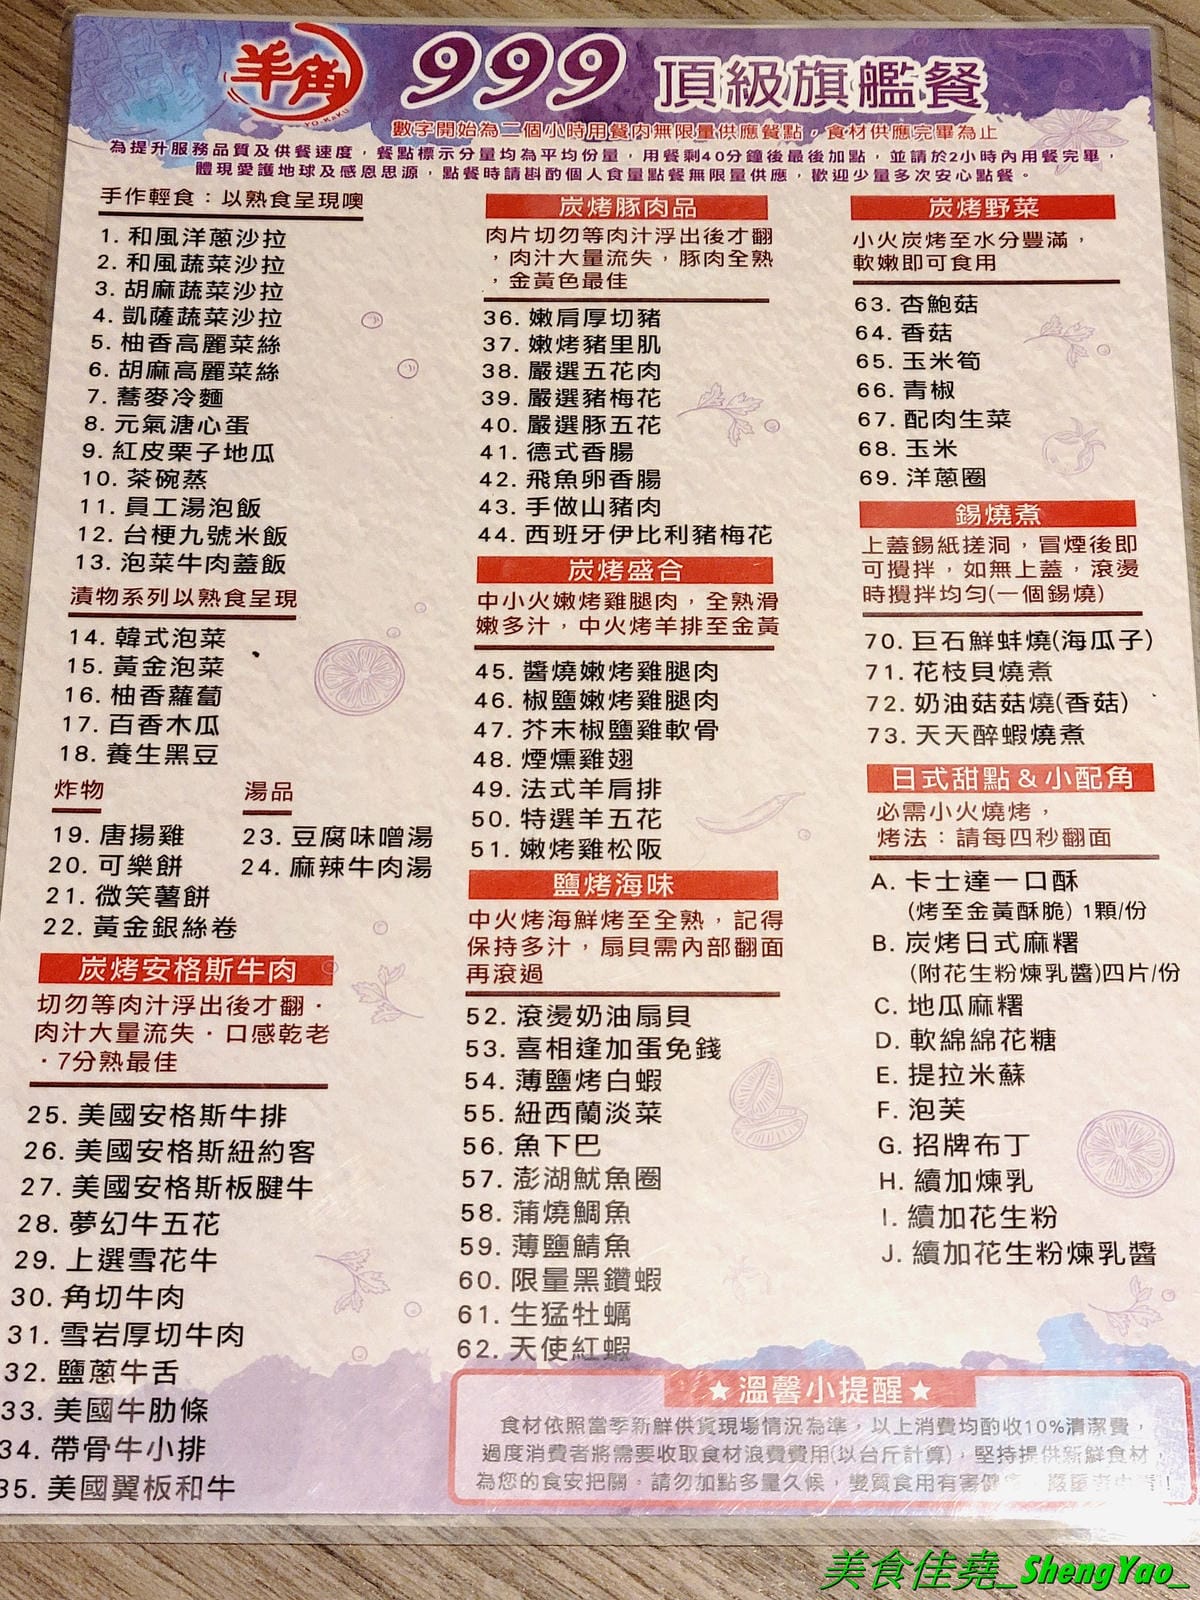 羊角
YO-KAKU
999 頂級旗艦餐
數字開始為二個小時用餐內無限量供應餐點，食材供應完畢為止
為提升服務品質及供餐速度，餐點標示分量均為平均份量，用餐剩40分鐘後最後加點，並請於2小時內用餐完畢，
體現愛護地球及感恩思源，點餐時請斟酌個人食量點餐無限量供應，歡迎少量多次安心點餐。
手作輕食：以熟食呈現噢
1. 和風洋蔥沙拉
2. 和風蔬菜沙拉
3. 胡麻蔬菜沙拉
4. 凱薩蔬菜沙拉
5. 柚香高麗菜絲
6. 胡麻高麗菜絲
7. 蕎麥冷麵
8. 元氣溏心蛋
9. 紅皮栗子地瓜
10. 茶碗蒸
11. 員工湯泡飯
12. 台梗九號米飯
13. 泡菜牛肉蓋飯
漬物系列以熟食呈現
14. 韓式泡菜
15. 黃金泡菜
16. 柚香蘿蔔
17. 百香木瓜
18. 養生黑豆
炸物
19. 唐揚雞
20. 可樂餅
21. 微笑薯餅
22. 黃金銀絲卷
湯品
23. 豆腐味噌湯
24. 麻辣牛肉湯
炭烤安格斯牛肉
切勿等肉汁浮出後才翻．
肉汁大量流失．口感乾老
．7分熟最佳
25. 美國安格斯牛排
26. 美國安格斯紐約客
27. 美國安格斯板腱牛
28. 夢幻牛五花
29. 上選雪花牛
30. 角切牛肉
31. 雪岩厚切牛肉
32. 鹽蔥牛舌
33. 美國牛肋條
34. 帶骨牛小排
35. 美國翼板和牛
炭烤豚肉品
肉片切勿等肉汁浮出後才翻
，肉汁大量流失，豚肉全熟
，金黃色最佳
36. 嫩肩厚切豬
37. 嫩烤豬里肌
38. 嚴選五花肉
39. 嚴選豬梅花
40. 嚴選豚五花
41. 德式香腸
42. 飛魚卵香腸
43. 手做山豬肉
44. 西班牙伊比利豬梅花
炭烤盛合
中小火嫩烤雞腿肉，全熟滑
嫩多汁，中火烤羊排至金黃
45. 醬燒嫩烤雞腿肉
46. 椒鹽嫩烤雞腿肉
47. 芥末椒鹽雞軟骨
48. 煙燻雞翅
49. 法式羊肩排
50. 特選羊五花
51. 嫩烤雞松阪
鹽烤海味
中火烤海鮮烤至全熟，記得
保持多汁，扇貝需內部翻面
再滾過
52. 滾燙奶油扇貝
53. 喜相逢加蛋免錢
54. 薄鹽烤白蝦
55. 紐西蘭淡菜
56. 魚下巴
57. 澎湖魷魚圈
58. 蒲燒鯛魚
59. 薄鹽鯖魚
60. 限量黑鑽蝦
61. 生猛牡蠣
62. 天使紅蝦
炭烤野菜
小火炭烤至水分豐滿，
軟嫩即可食用
63. 杏鮑菇
64. 香菇
65. 玉米筍
66. 青椒
67. 配肉生菜
68. 玉米
69. 洋蔥圈
錫燒煮
上蓋錫紙搓洞，冒煙後即
可攪拌，如無上蓋，滾燙
時攪拌均勻(一個錫燒)
70. 巨石鮮蚌燒(海瓜子)
71. 花枝貝燒煮
72. 奶油菇菇燒(香菇)
73. 天天醉蝦燒煮
日式甜點＆小配角
必需小火燒烤，
烤法：請每四秒翻面
A. 卡士達一口酥
(烤至金黃酥脆) 1顆/份
B. 炭烤日式麻糬
(附花生粉煉乳醬)四片/份
C. 地瓜麻糬
D. 軟綿綿花糖
E. 提拉米蘇
F. 泡芙
G. 招牌布丁
H. 續加煉乳
I. 續加花生粉
J. 續加花生粉煉乳醬
★溫馨小提醒★
食材依照當季新鮮供貨現場情況為準，以上消費均酌收10%清潔費，
過度消費者將需要收取食材浪費費用(以台斤計算)，堅持提供新鮮食材，
為您的食安把關。請勿加點多量久候，變質食用有害健
美食佳堯_ShengYao_